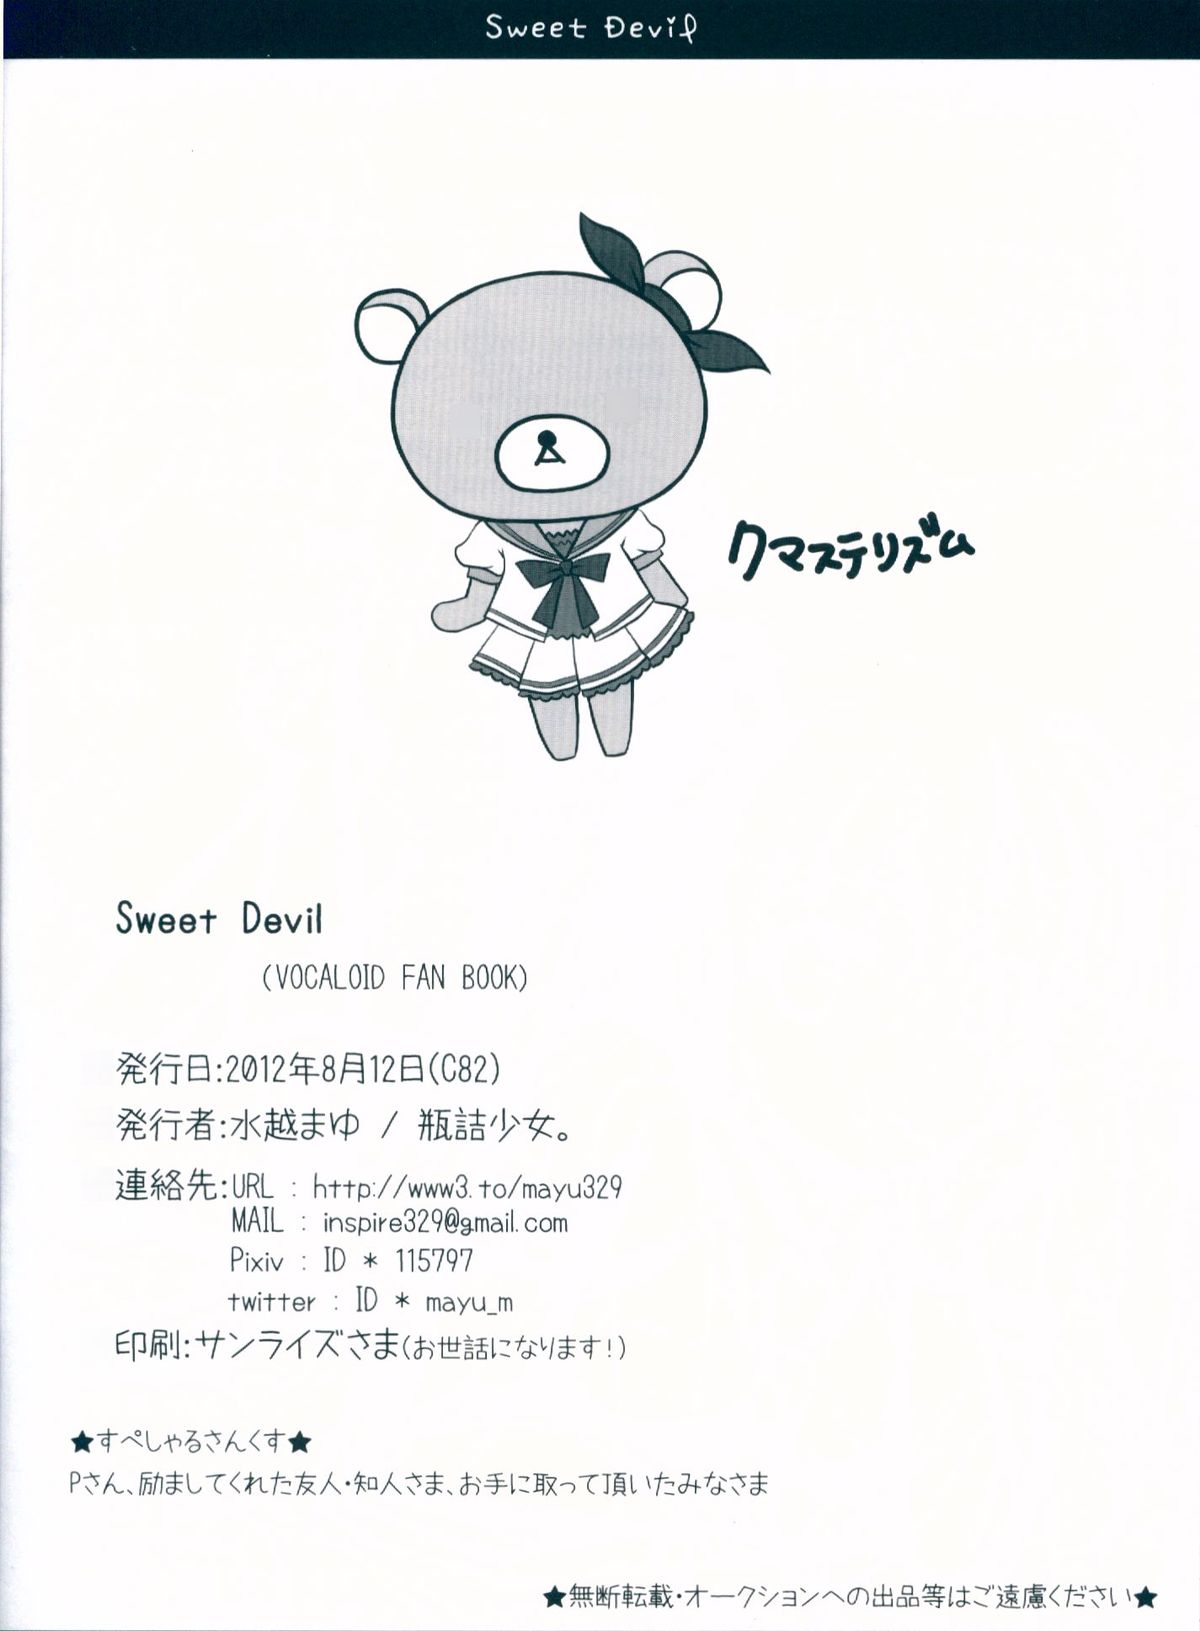 Sweet Devil
クマステリズム
Sweet Devil
(VOCALOID FAN BOOK)
発行日:2012年8月12日(C82)
発行者:水越まゆ / 瓶詰少女。
連絡先:URL : http://www3.to/mayu329
MAIL : inspire329@gmail.com
Pixiv : ID * 115797
twitter : ID * mayu_m
印刷:サンライズさま(お世話になります!)
★すぺしゃるさんくす★
Pさん、励ましてくれた友人・知人さま、お手に取って頂いたみなさま
★無断転載・オークションへの出品等はご遠慮ください★